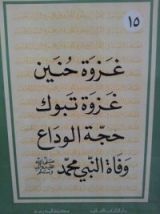 ١٥
غَزوَة حُنَين
غَزوَة تَبوك
حجّة الوَدَاع
وَفاة النَّبي مُحمَّد ﷺ